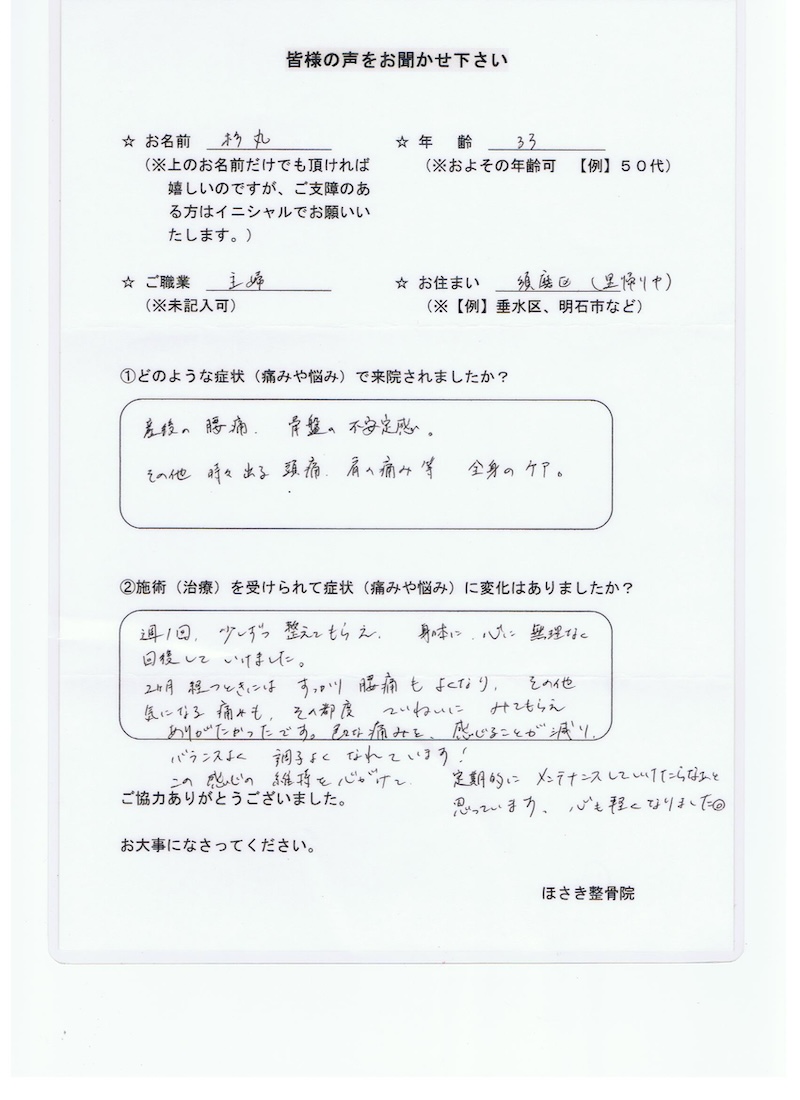 皆様の声をお聞かせ下さい
☆ お名前 杉丸
☆ 年 齢 33
(※上のお名前だけでも頂ければ
嬉しいのですが、ご支障のあ
る方はイニシャルでお願いい
たします。)
(※およその年齢可 【例】50代)
☆ ご職業 主婦
☆ お住まい 須磨区(里帰り中)
(※未記入可)
(※【例】垂水区、明石市など)
①どのような症状(痛みや悩み)で来院されましたか?
産後の腰痛、骨盤の不安定感。
その他 時々出る頭痛、肩の痛み等 全身のケア。
②施術(治療)を受けられて症状(痛みや悩み)に変化はありましたか?
週1回、少しずつ整えてもらえ、身体に、心に無理なく
回復していけました。
2ヶ月経つときにはすっかり腰痛もよくなり、その他
気になる痛みも、その都度ていねいにみてもらえ
ありがたかったです。色々な痛みを、感じることが減り、
バランスよく調子よくなれています!
この感じの維持を心がけて、定期的にメンテナンスしていけたらなぁと
思っています、心も軽くなりました
ご協力ありがとうございました。
お大事になさってください。
ほさき整骨院